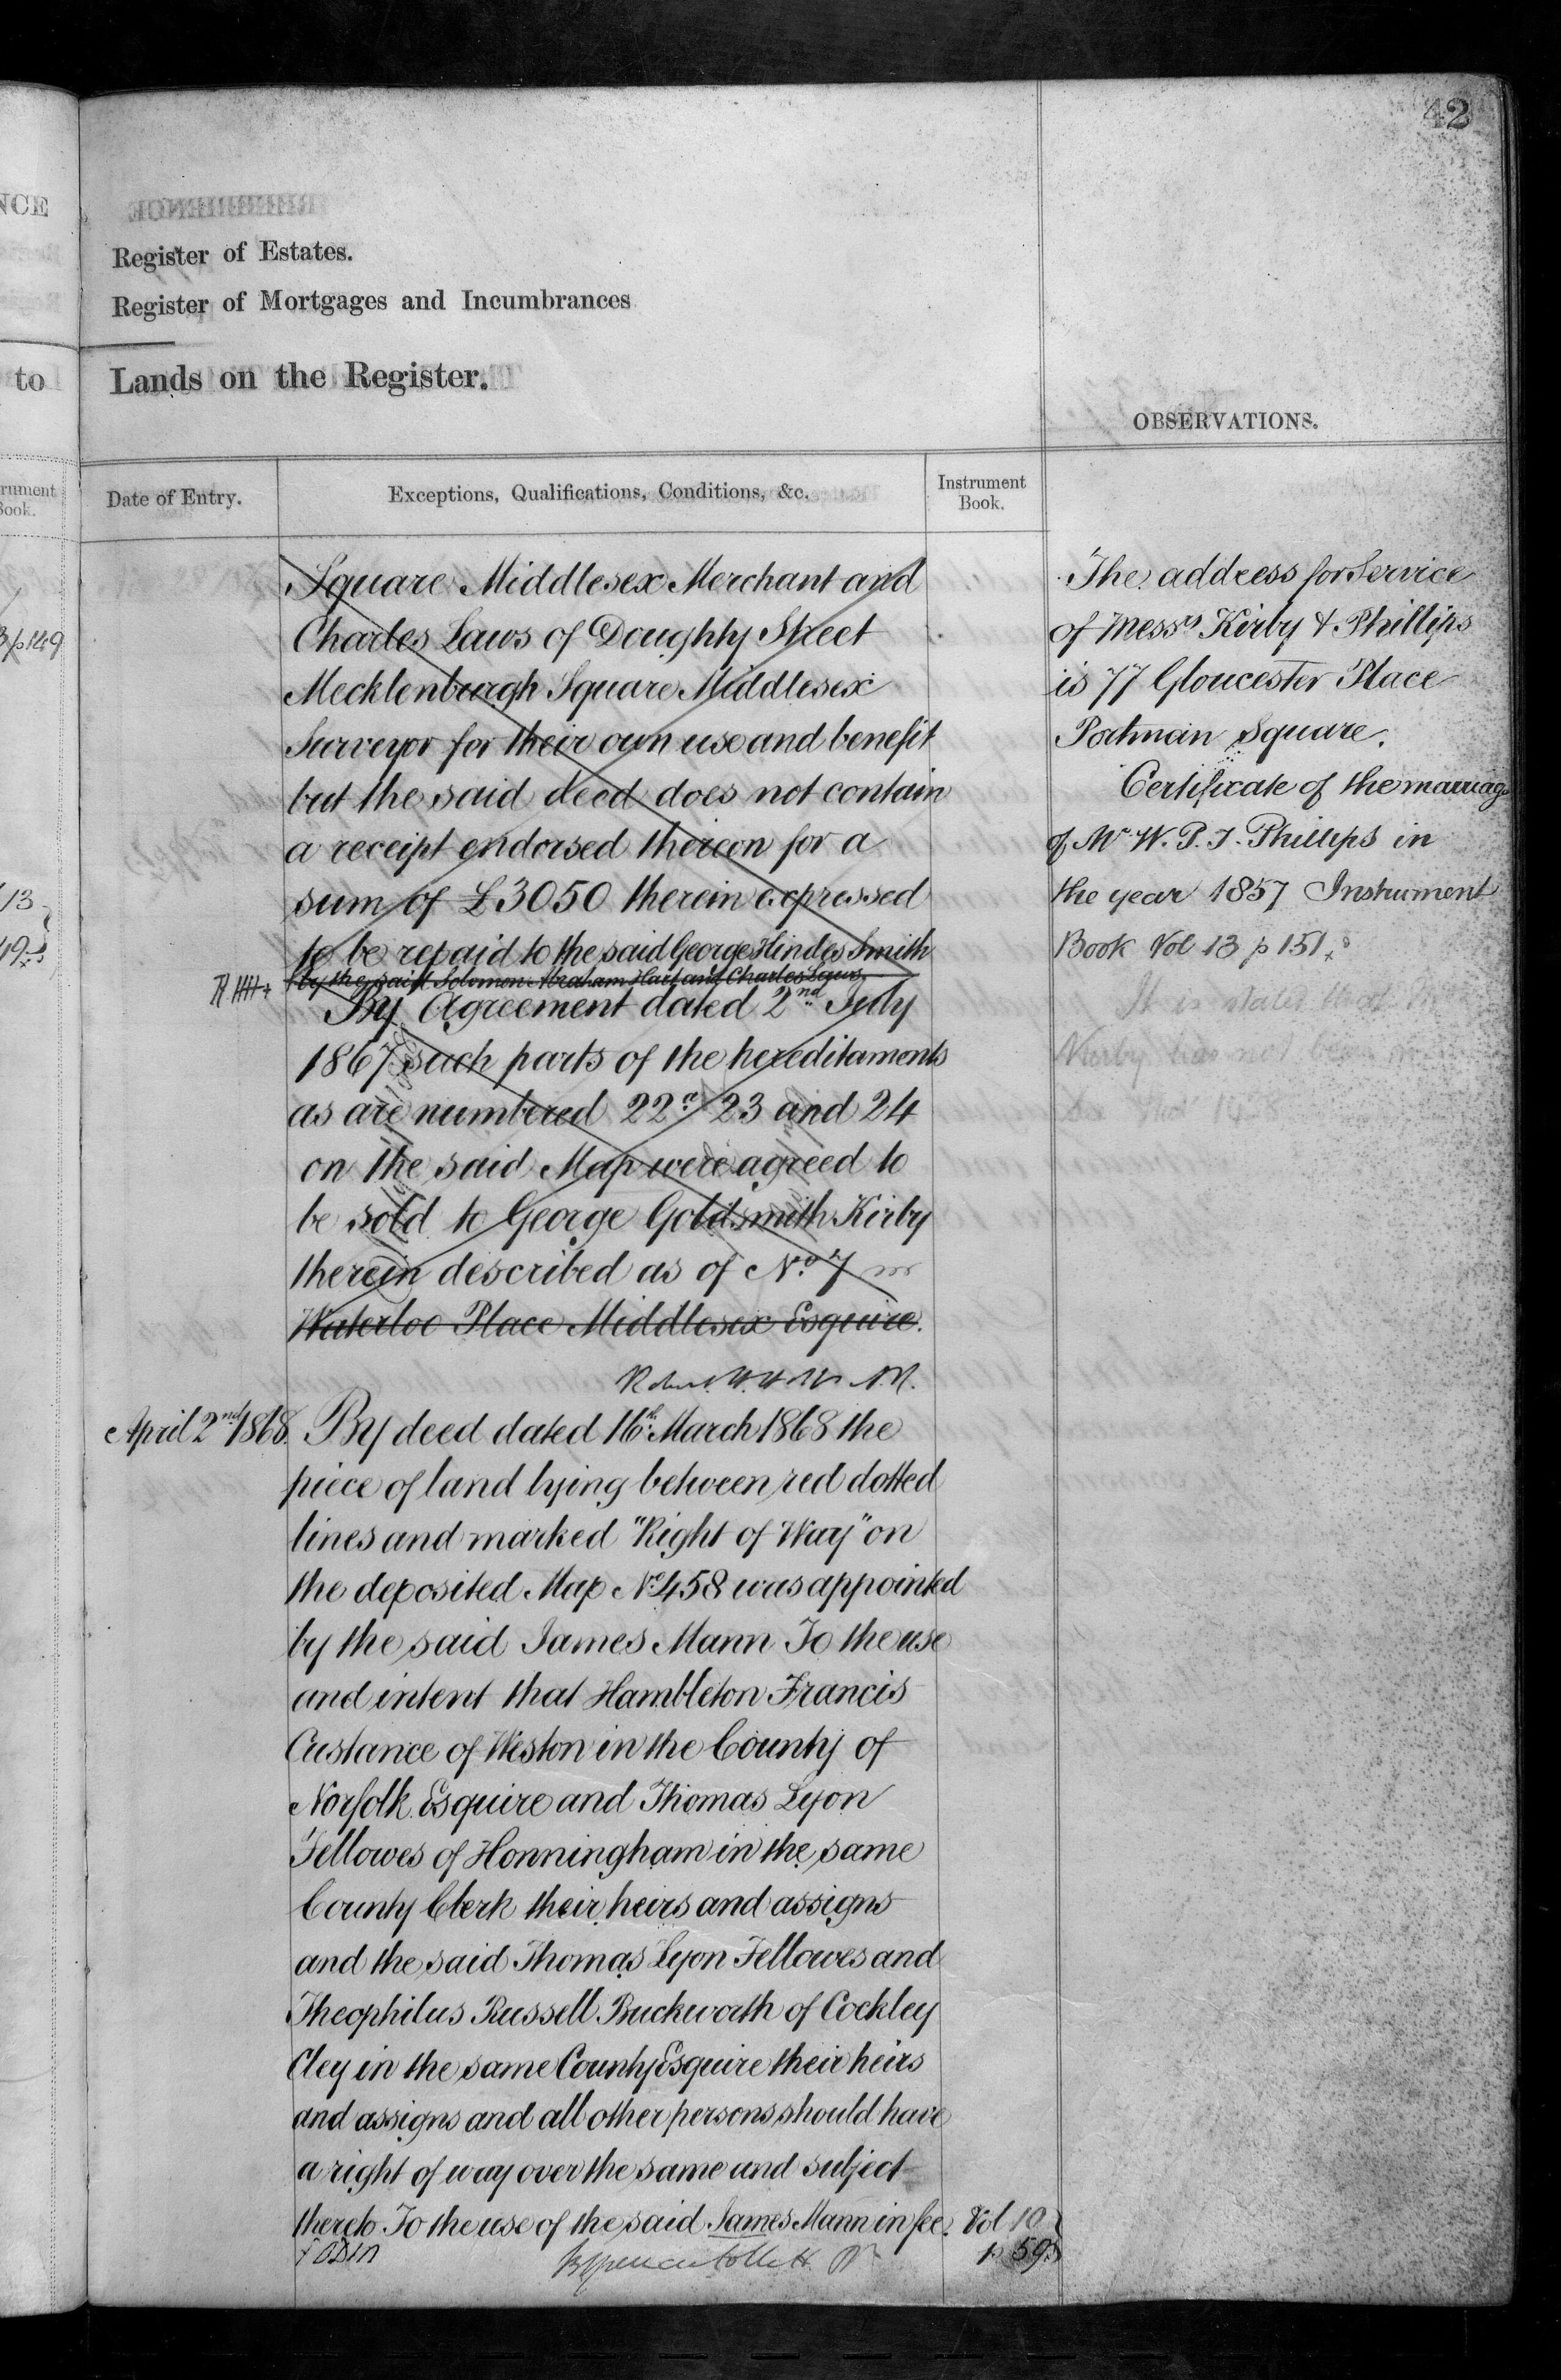 42
NCE
Register of Estates.
Register of Mortgages and Incumbrances
to
Lands on the Register.
OBSERVATIONS.
Date of Entry.
Exceptions, Qualifications, Conditions, &c.
Instrument
Book.
Square Middlesex Merchant and
Charles Laws of Doughty Street
Mecklenburgh Square Middlesex
Surveyor for their own use and benefit
but the said deed does not contain
a receipt endorsed thereon for a
sum of £3050 therein expressed
to be repaid to the said George Hindes Smith
by the said Solomon Abraham Hart and Charles Laws.
By Agreement dated 2nd July
1867 such parts of the hereditaments
as are numbered 22a 23 and 24
on the said Map were agreed to
be sold to George Goldsmith Kirby
therein described as of No. 7
Waterloo Place Middlesex Esquire.
April 2nd 1868. By deed dated 16th March 1868 the
piece of land lying between red dotted
lines and marked "Right of Way" on
the deposited Map No. 458 was appointed
by the said James Mann To the use
and intent that Hambleton Francis
Custance of Weston in the County of
Norfolk Esquire and Thomas Lyon
Fellowes of Honningham in the same
County Clerk their heirs and assigns
and the said Thomas Lyon Fellowes and
Theophilus Russell Buckworth of Cockley
Cley in the same County Esquire their heirs
and assigns and all other persons should have
a right of way over the same and subject
thereto To the use of the said James Mann in fee. Vol 10
p 59
The address for Service
of Messrs Kirby & Phillips
is 77 Gloucester Place
Portman Square.
Certificate of the marriage
of Mr W. P. J. Phillips in
the year 1857 Instrument
Book Vol 13 p 151
It is stated that
Kirby has not been